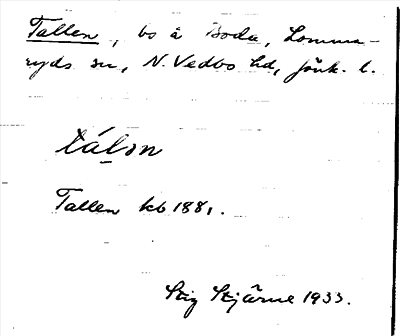 Tallen, bo å Boda, Lomma-
ryds sn, N. Vedbo hd, Jönk. l.
tálɔn
Tallen kb 1881.
Stig Stjärne 1933.